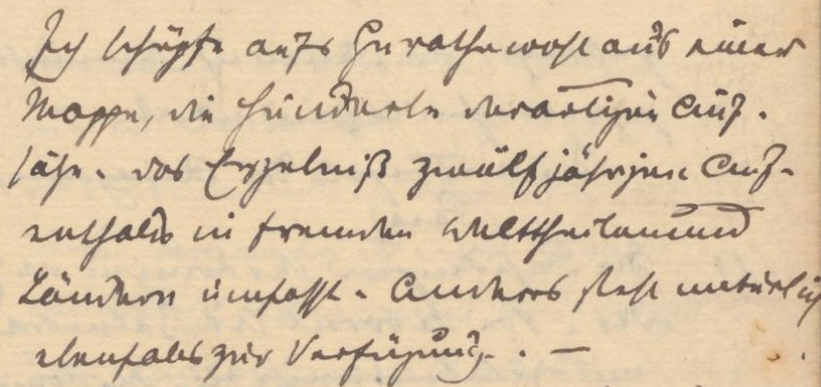 Ich schöpfe aufs Gerathewohl aus einer
Mappe, die hunderte derartigen Auf-
sätze - das Ergebniß zwölfjährigen Auf-
enthalts in fremden Welttheilen und
Ländern umfaßt. Anderes steht natürlich
ebenfalls zur Verfügung. . —